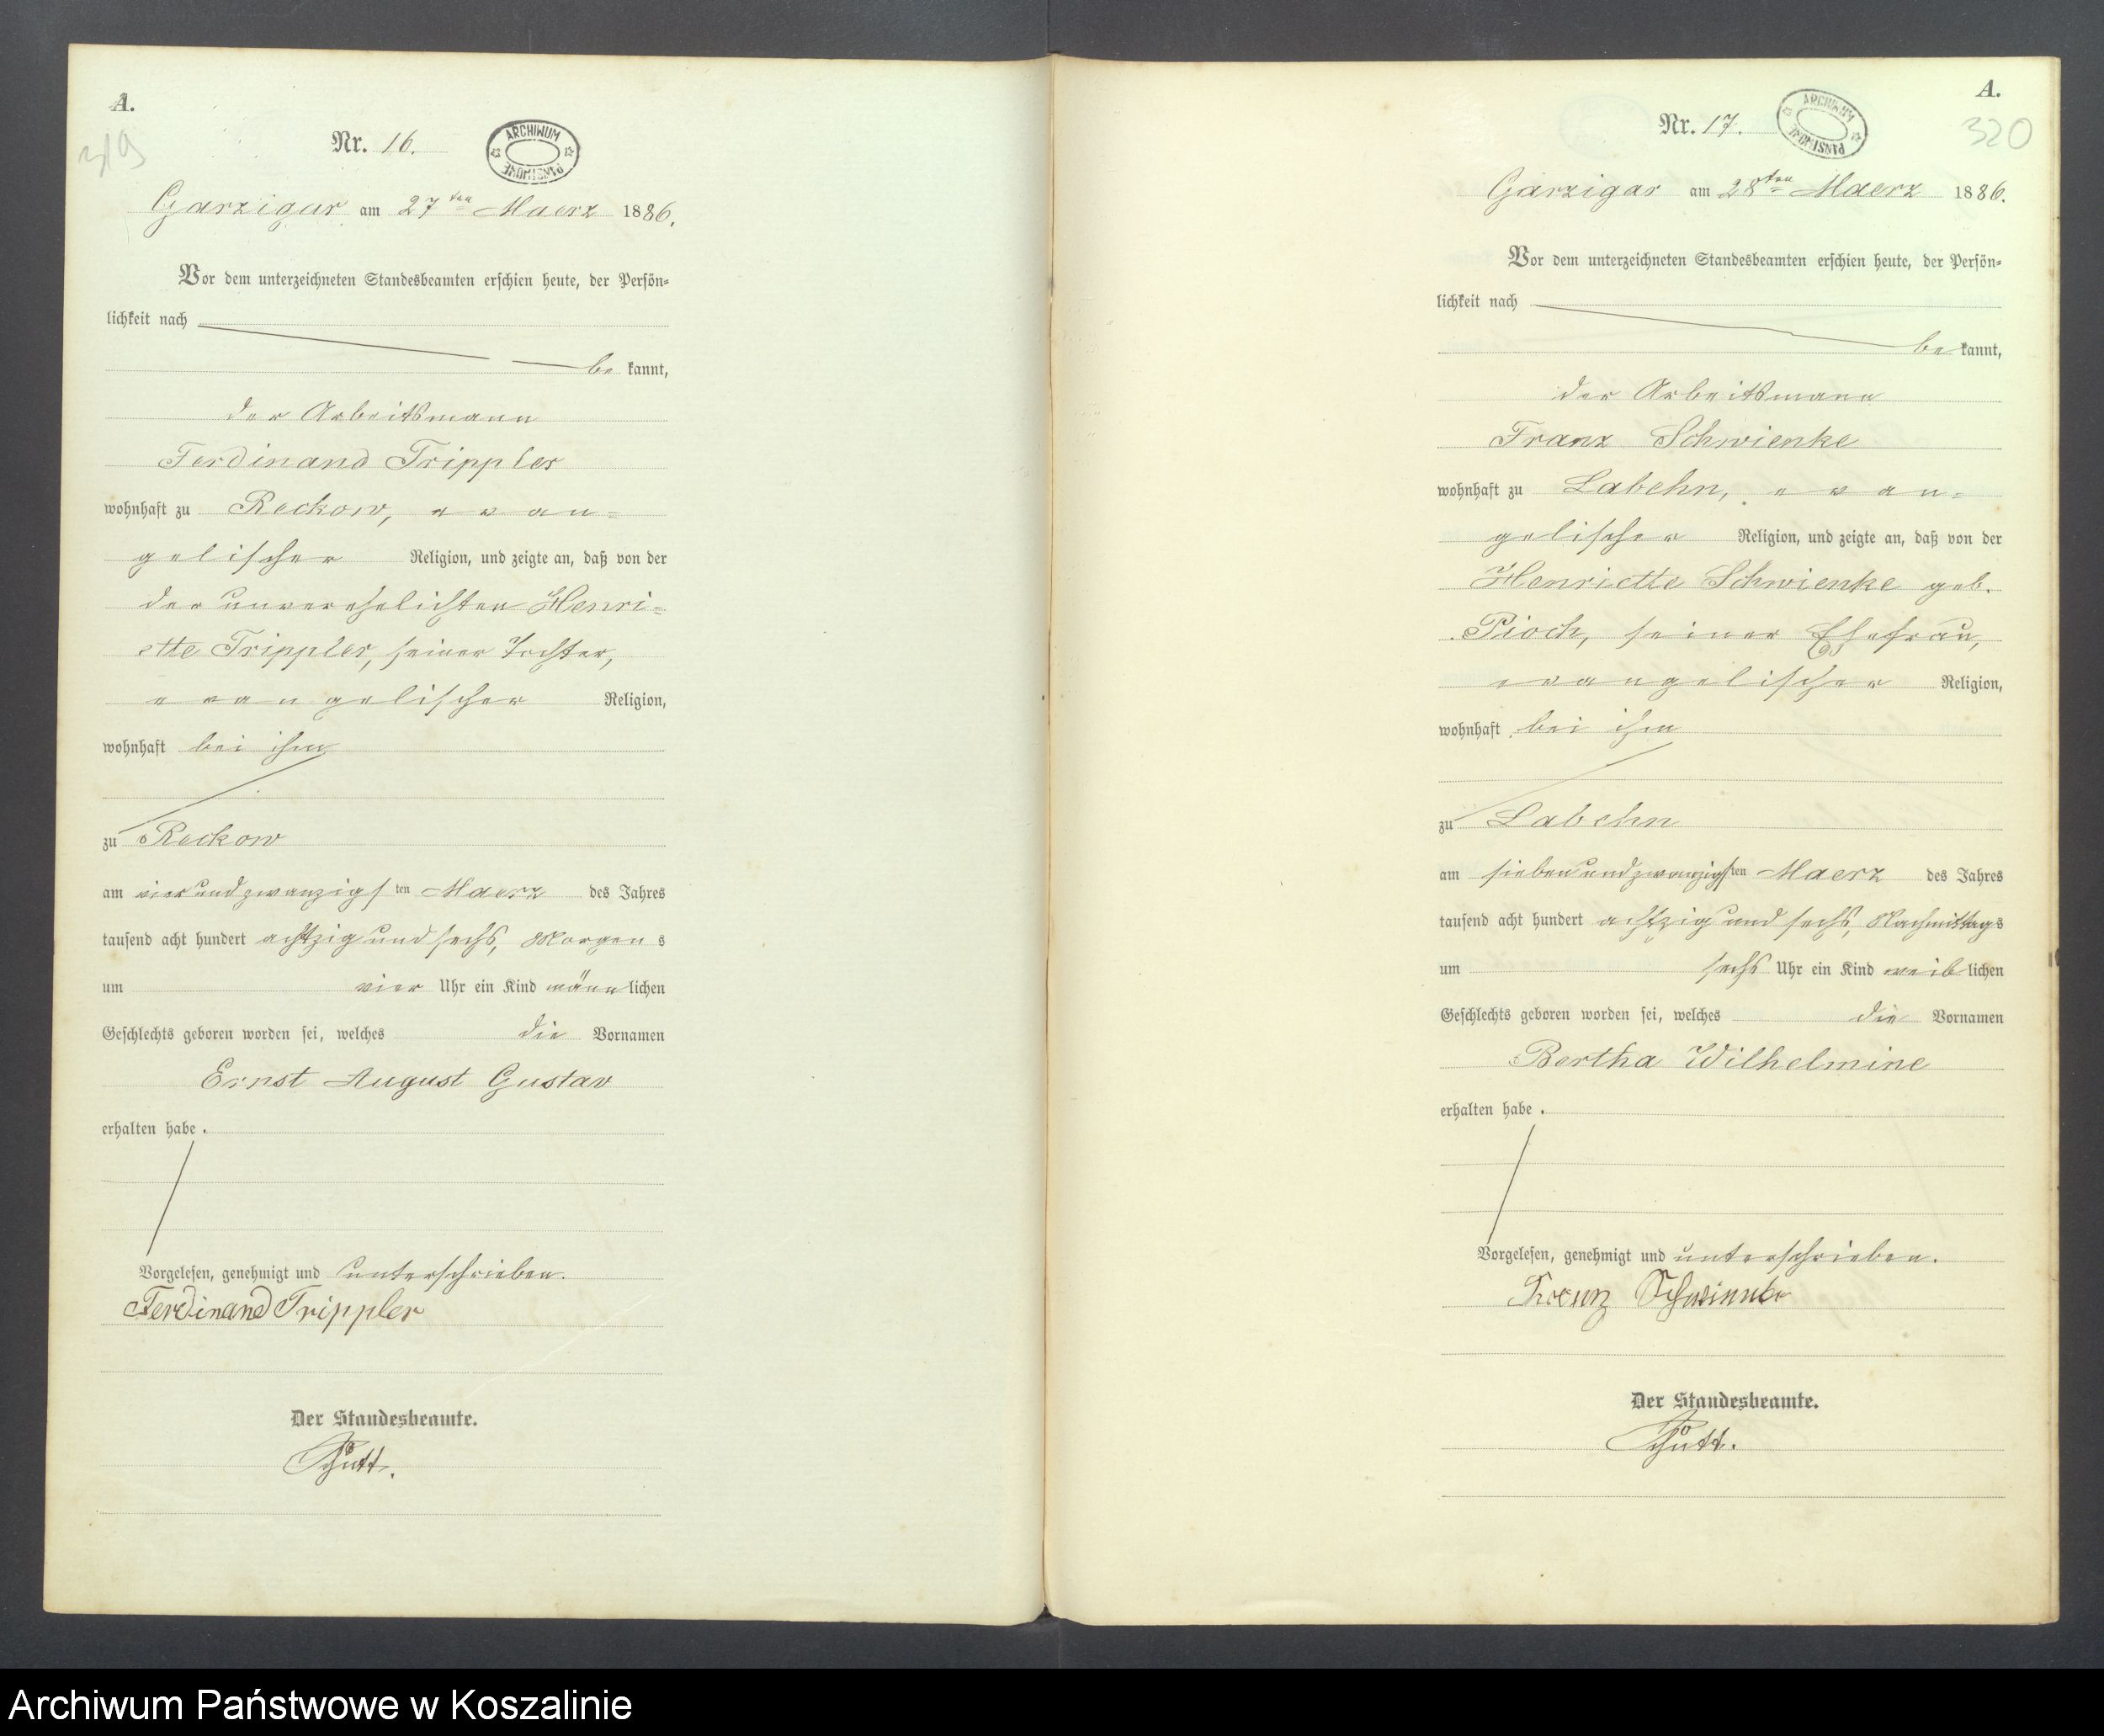 A.
319
Nr. 16.
ARCHIWUM PAŃSTWOWE
Garzigar am 27ten Maerz 1886.
Vor dem unterzeichneten Standesbeamten erschien heute, der Persön-
lichkeit nach
be kannt,
der Arbeitsmann
Ferdinand Trippler
wohnhaft zu Reckow, evan-
gelischer Religion, und zeigte an, daß von der
der unverehelichten Henri-
ette Trippler, seiner Tochter,
evangelischer Religion,
wohnhaft bei ihm
zu Reckow
am vierundzwanzigsten Maerz des Jahres
tausend acht hundert achtzig und sechs, Morgens
um vier Uhr ein Kind männlichen
Geschlechts geboren worden sei, welches die Vornamen
Ernst August Gustav
erhalten habe.
Vorgelesen, genehmigt und unterschrieben.
Ferdinand Trippler
Der Standesbeamte.
A.
320
Nr. 17.
ARCHIWUM PAŃSTWOWE
Garzigar am 28ten Maerz 1886.
Vor dem unterzeichneten Standesbeamten erschien heute, der Persön-
lichkeit nach
be kannt,
der Arbeitsmann
Franz Schwienke
wohnhaft zu Labehn, evan-
gelischer Religion, und zeigte an, daß von der
Henriette Schwienke geb.
Pioch, seiner Ehefrau,
evangelischer Religion,
wohnhaft bei ihm
zu Labehn
am siebenundzwanzigsten Maerz des Jahres
tausend acht hundert achtzig und sechs, Nachmittags
um sechs Uhr ein Kind weiblichen
Geschlechts geboren worden sei, welches die Vornamen
Bertha Wilhelmine
erhalten habe.
Vorgelesen, genehmigt und unterschrieben.
Franz
Der Standesbeamte.
Archiwum Państwowe w Koszalinie